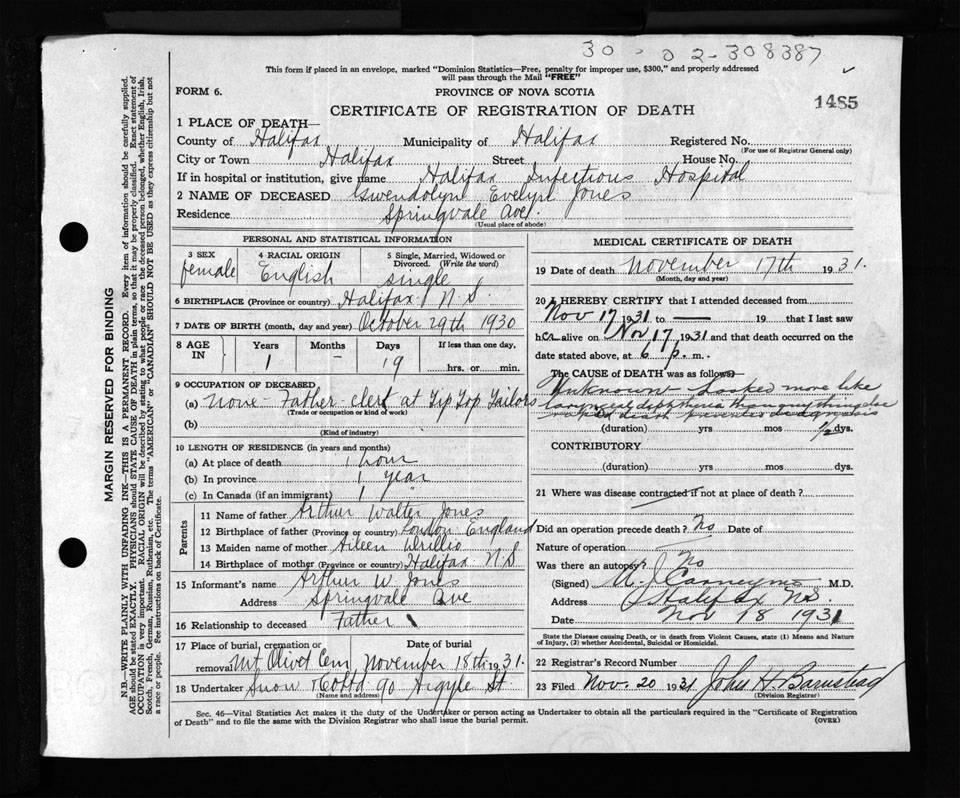 30-02-308387
This form if placed in an envelope, marked "Dominion Statistics—Free, penalty for improper use, $300," and properly addressed
will pass through the Mail "FREE"
FORM 6.
PROVINCE OF NOVA SCOTIA
CERTIFICATE OF REGISTRATION OF DEATH
1485
1 PLACE OF DEATH—
County of Halifax Municipality of Halifax Registered No.
(For use of Registrar General only)
City or Town Halifax Street House No.
If in hospital or institution, give name Halifax Infectious Hospital
2 NAME OF DECEASED Gwendolyn Evelyn Jones
Residence Springvale Ave.
(Usual place of abode)
PERSONAL AND STATISTICAL INFORMATION
3 SEX 4 RACIAL ORIGIN 5 Single, Married, Widowed or
Divorced. (Write the word)
female English single
6 BIRTHPLACE (Province or country) Halifax N.S.
7 DATE OF BIRTH (month, day and year) October 29th 1930
8 AGE IN Years Months Days If less than one day,
1 — 19 hrs. or min.
9 OCCUPATION OF DECEASED
(a) None - Father - clerk at Tip Top Tailors
(Trade or occupation or kind of work)
(b)
(Kind of industry)
10 LENGTH OF RESIDENCE (in years and months)
(a) At place of death 1 hour
(b) In province 1 year
(c) In Canada (if an immigrant) 1
Parents
11 Name of father Arthur Walter Jones
12 Birthplace of father (Province or country) London England
13 Maiden name of mother Aileen Drillio
14 Birthplace of mother (Province or country) Halifax N.S
15 Informant's name Arthur W. Jones
Address Springvale Ave
16 Relationship to deceased Father
17 Place of burial, cremation or Date of burial
removal Mt Olivet Cem November 18th 1931.
18 Undertaker Snow & Co Ltd 90 Argyle St.
(Name and address)
MEDICAL CERTIFICATE OF DEATH
19 Date of death November 17th 1931.
(Month, day and year)
20 I HEREBY CERTIFY that I attended deceased from
Nov 17 1931 to — 19 that I last saw
her alive on Nov 17, 1931 and that death occurred on the
date stated above, at 6 p. m.
The CAUSE of DEATH was as follows—
Unknown - Looked more like
laryngeal diphtheria than anything else
rapid death prevented diagnosis
(duration) yrs mos 1/2 dys.
CONTRIBUTORY
(duration) yrs mos dys.
21 Where was disease contracted if not at place of death?
Did an operation precede death? No Date of
Nature of operation
Was there an autopsy? No
(Signed) M.D.
Address Halifax N.S.
Date Nov 18 1931
State the Disease causing Death, or in death from Violent Causes, state (1) Means and Nature
of Injury, (2) whether Accidental, Suicidal or Homicidal.
22 Registrar's Record Number
23 Filed Nov. 20 1931 John H Barnstead
(Division Registrar)
Sec. 46—Vital Statistics Act makes it the duty of the Undertaker or person acting as Undertaker to obtain all the particulars required in the "Certificate of Registration
of Death" and to file the same with the Division Registrar who shall issue the burial permit.
(OVER)
MARGIN RESERVED FOR BINDING
N.B.—WRITE PLAINLY WITH UNFADING INK—THIS IS A PERMANENT RECORD. Every item of information should be carefully supplied.
AGE should be stated EXACTLY. PHYSICIANS should STATE CAUSE OF DEATH in plain terms, so that it may be properly classified. Exact statement of
OCCUPATION is very important. RACIAL ORIGIN will be described by stating to what people or race the deceased person belonged, whether English, Irish,
Scotch, French, German, Russian, Ruthenian, etc. The terms "AMERICAN" or "CANADIAN" SHOULD NOT BE USED as they express citizenship but not
a race or people. See instructions on back of Certificate.